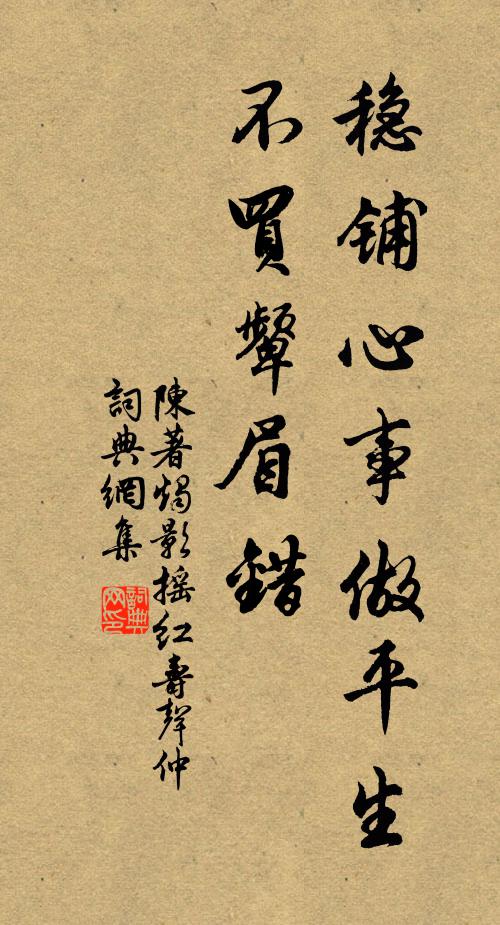 穏鋪心事做平生
不買顰眉錯
陳著燭影搖紅壽聲仲
詞典網集
詞典网印